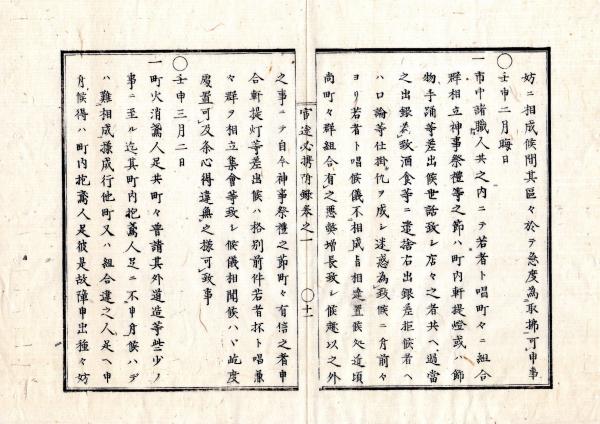 妨ニ相成候間其區々於テ急度為取拂可申事
○
壬申二月晦日
一市中諸職人共之内ニテ若者ト唱町々ニ組合
群相立神事祭禮等之節ハ町内軒提燈或ハ飾
物手踊等差出候世話致シ店々之者共ヘ過當
之出銀為致酒食等ニ遣捨右出銀差拒候者ヘ
ハ口論等仕掛仇ヲ成シ迷惑為致候ニ付前々
ヨリ若者ト唱候儀不相成旨相達置候処近頃
尚町々群組合有之悪弊増長致シ候趣以之外
官達必携附録巻之一
○十一
之事ニテ自今神事祭禮之節町々有信之者申
合軒提灯等差出候ハ格別前件若者抔ト唱兼
々群ヲ相立集會等致シ候儀相聞候ハヽ屹度
處置可及条心得違無之様可致事
○
壬申三月二日
一町火消鳶人足共町々普請其外道造等些少ノ
事ニ至ル迄其町内抱鳶人足ニ不申付候ハデ
ハ難相成様成行他町又ハ組合違之人足ヘ申
付候得ハ町内抱鳶人足彼是故障申出種々妨